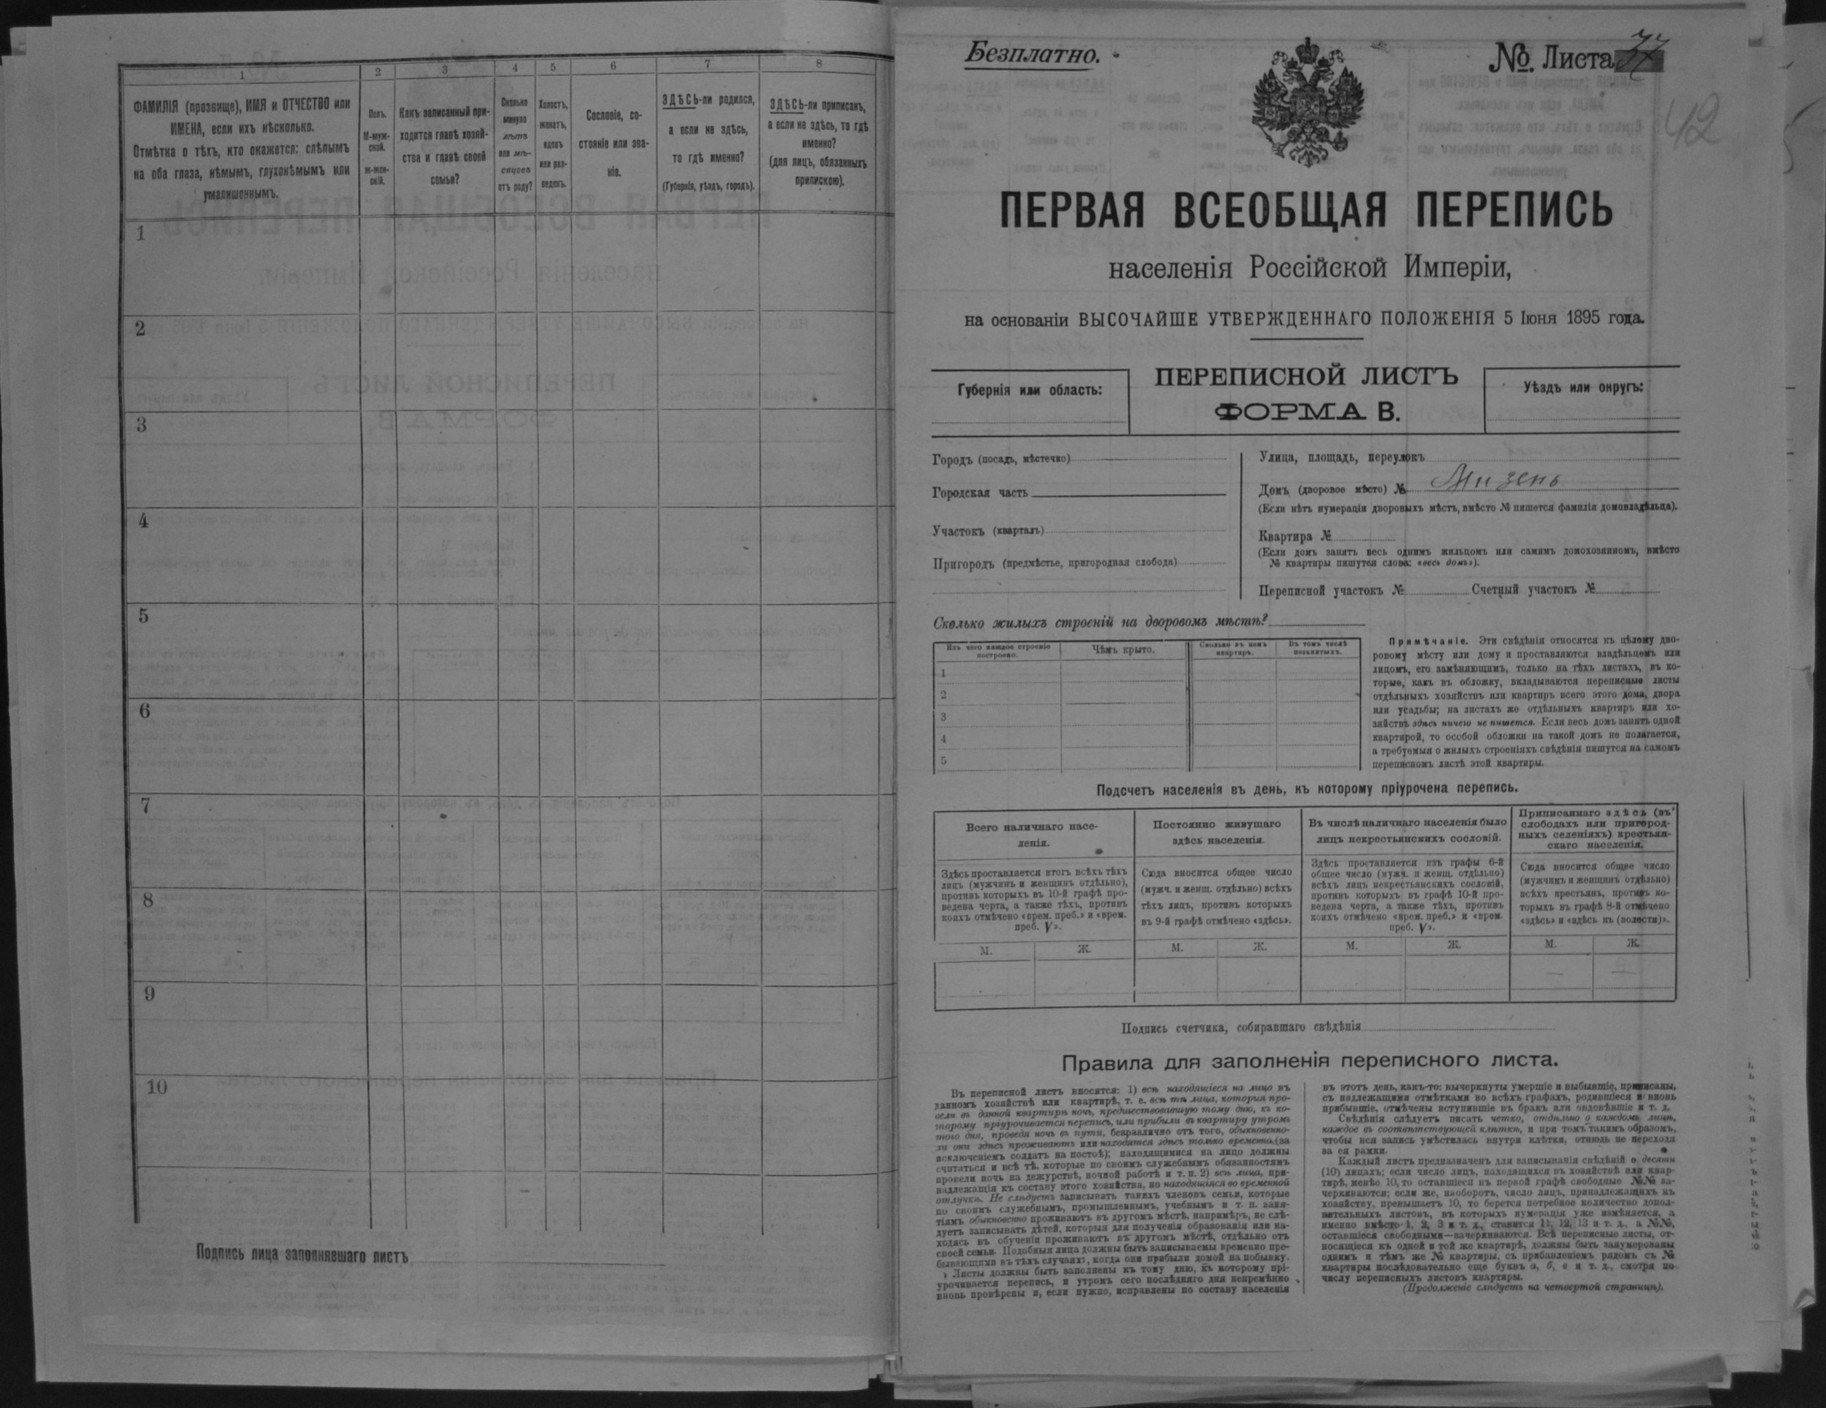 1
2
3
4
5
6
7
8
ФАМИЛІЯ (прозвище), ИМЯ и ОТЧЕСТВО или
ИМЕНА, если ихъ нѣсколько.
Отмѣтка о тѣхъ, кто окажется: слѣпымъ
на оба глаза, нѣмымъ, глухонѣмымъ или
умалишеннымъ.
Полъ.
М-муж-
ской.
Ж-жен-
скій.
Какъ записанный при-
ходится главѣ хозяй-
ства и главѣ своей
семьи?
Сколько
минуло
лѣтъ
или мѣ-
сяцевъ
отъ роду?
Холостъ,
женатъ,
вдовъ
или раз-
веденъ.
Сословіе, со-
стояніе или зва-
ніе.
ЗДѢСЬ-ли родился,
а если не здѣсь,
то гдѣ именно?
(Губернія, уѣздъ, городъ).
ЗДѢСЬ-ли приписанъ,
а если не здѣсь, то гдѣ
именно?
(для лицъ, обязанныхъ
припискою).
1
2
3
4
5
6
7
8
9
10
Подпись лица заполнявшаго листъ
Безплатно.
№ Листа 37
42
ПЕРВАЯ ВСЕОБЩАЯ ПЕРЕПИСЬ
населенія Россійской Имперіи,
на основаніи ВЫСОЧАЙШЕ УТВЕРЖДЕННАГО ПОЛОЖЕНІЯ 5 Іюня 1895 года.
Губернія или область:
ПЕРЕПИСНОЙ ЛИСТЪ
ФОРМА В.
Уѣздъ или округъ:
Городъ (посадъ, мѣстечко)
Городская часть
Участокъ (кварталъ)
Пригородъ (предмѣстье, пригородная слобода)
Улица, площадь, переулокъ
Домъ (дворовое мѣсто) № Мизень
(Если нѣтъ нумераціи дворовыхъ мѣстъ, вмѣсто № пишется фамилія домовладѣльца).
Квартира №
(Если домъ занятъ весь однимъ жильцомъ или самимъ домохозяиномъ, вмѣсто
№ квартиры пишутся слова: «весь домъ»).
Переписной участокъ № Счетный участокъ №
Сколько жилыхъ строеній на дворовомъ мѣстѣ?
Изъ чего каждое строеніе
построено.
Чѣмъ крыто.
Сколько въ немъ
квартиръ.
Въ томъ числѣ
незанятыхъ.
1
2
3
4
5
Примѣчаніе. Эти свѣдѣнія относятся къ цѣлому дво-
ровому мѣсту или дому и проставляются владѣльцемъ или
лицомъ, его замѣняющимъ, только на тѣхъ листахъ, въ ко-
торые, какъ въ обложку, вкладываются переписные листы
отдѣльныхъ хозяйствъ или квартиръ всего этого дома, двора
или усадьбы; на листахъ же отдѣльныхъ квартиръ или хо-
зяйствъ здѣсь ничего не пишется. Если весь домъ занятъ одной
квартирой, то особой обложки на такой домъ не полагается,
а требуемыя о жилыхъ строеніяхъ свѣдѣнія пишутся на самомъ
переписномъ листѣ этой квартиры.
Подсчетъ населенія въ день, къ которому пріурочена перепись.
Всего наличнаго насе-
ленія.
Постоянно живущаго
здѣсь населенія.
Въ числѣ наличнаго населенія было
лицъ некрестьянскихъ сословій.
Приписаннаго здѣсь (въ
слободахъ или пригород-
ныхъ селеніяхъ) крестьян-
скаго населенія.
Здѣсь проставляется итогъ всѣхъ тѣхъ
лицъ (мужчинъ и женщинъ отдѣльно),
противъ которыхъ въ 10-й графѣ про-
ведена черта, а также тѣхъ, противъ
коихъ отмѣчено «врем. преб.» и «врем.
преб. V».
Сюда вносится общее число
(мужч. и женщ. отдѣльно) всѣхъ
тѣхъ лицъ, противъ которыхъ
въ 9-й графѣ отмѣчено «здѣсь».
Здѣсь проставляется изъ графы 6-й
общее число (мужч. и женщ. отдѣльно)
всѣхъ лицъ некрестьянскихъ сословій,
противъ которыхъ въ графѣ 10-й про-
ведена черта, а также тѣхъ, противъ
коихъ отмѣчено «врем. преб.» и «врем.
преб. V».
Сюда вносится общее число
(мужчинъ и женщинъ отдѣльно)
всѣхъ крестьянъ, противъ ко-
торыхъ въ графѣ 8-й отмѣчено
«здѣсь» и «здѣсь къ (волости)».
М. Ж. М. Ж. М. Ж. М. Ж.
Подпись счетчика, собиравшаго свѣдѣнія
Правила для заполненія переписного листа.
Въ переписной листъ вносятся: 1) всѣ находящіеся на лицо въ
данномъ хозяйствѣ или квартирѣ, т. е. всѣ тѣ лица, которыя про-
вели въ данной квартирѣ ночь, предшествовавшую тому дню, къ ко-
торому пріурочивается перепись, или прибыли въ квартиру утромъ
того дня, проведя ночь въ пути, безразлично отъ того, обыкновенно-
ли они здѣсь проживаютъ или находятся здѣсь только временно (за
исключеніемъ солдатъ на постоѣ); находящимися на лицо должны
считаться и всѣ тѣ, которые по своимъ служебнымъ обязанностямъ
провели ночь на дежурствѣ, ночной работѣ и т. п. 2) всѣ лица, при-
надлежащія къ составу этого хозяйства, но находящіяся во временной
отлучкѣ. Не слѣдуетъ записывать такихъ членовъ семьи, которые
по своимъ служебнымъ, промышленнымъ, учебнымъ и т. п. заня-
тіямъ обыкновенно проживаютъ въ другомъ мѣстѣ, напримѣръ, не слѣ-
дуетъ записывать дѣтей, которыя для полученія образованія или на-
ходясь въ обученіи проживаютъ въ другомъ мѣстѣ, отдѣльно отъ
своей семьи. Подобныя лица должны быть записываемы временно пре-
бывающими въ тѣхъ случаяхъ, когда они прибыли домой на побывку.
Листы должны быть заполнены къ тому дню, къ которому прі-
урочивается перепись, и утромъ сего послѣдняго дня непремѣнно
вновь провѣрены и, если нужно, исправлены по составу населенія
въ этотъ день, какъ-то: вычеркнуты умершіе и выбывшіе, приписаны,
съ надлежащими отмѣтками во всѣхъ графахъ, родившіеся и вновь
прибывшіе, отмѣчены вступившіе въ бракъ или овдовѣвшіе и т. д.
Свѣдѣнія слѣдуетъ писать четко, отдѣльно о каждомъ лицѣ,
каждое въ соотвѣтствующей клѣткѣ, и при томъ такимъ образомъ,
чтобы вся запись умѣстилась внутри клѣтки, отнюдь не переходя
за ея рамки.
Каждый листъ предназначенъ для записыванія свѣдѣній о десяти
(10) лицахъ; если число лицъ, находящихся въ хозяйствѣ или квар-
тирѣ, менѣе 10, то оставшіеся въ первой графѣ свободные №№ за-
черкиваются; если же, наоборотъ, число лицъ, принадлежащихъ къ
хозяйству, превышаетъ 10, то берется потребное количество допол-
нительныхъ листовъ, въ которыхъ нумерація уже измѣняется, а
именно вмѣсто 1, 2, 3 и т. д., ставится 11, 12, 13 и т. д., а №№,
оставшіеся свободными—зачеркиваются. Всѣ переписные листы, от-
носящіеся къ одной и той же квартирѣ, должны быть занумерованы
однимъ и тѣмъ же № квартиры, съ прибавленіемъ рядомъ съ №
квартиры послѣдовательно еще буквъ а, б, в и т. д., смотря по
числу переписныхъ листовъ квартиры.
(Продолженіе слѣдуетъ на четвертой страницѣ).